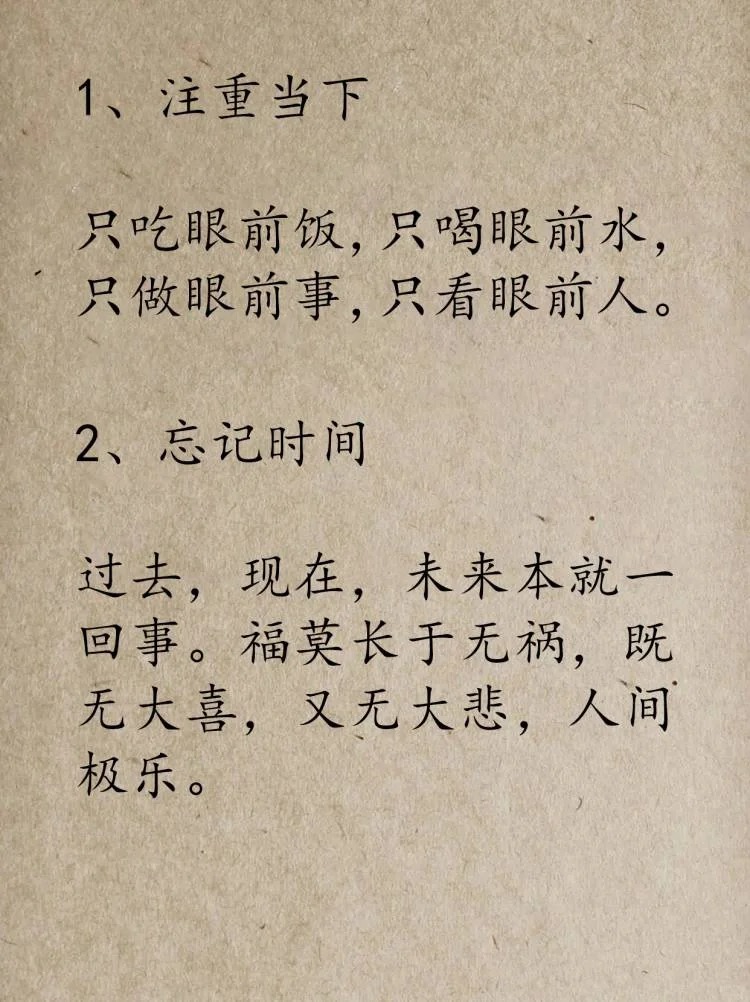 1、注重当下
只吃眼前饭，只喝眼前水，
只做眼前事，只看眼前人。
2、忘记时间
过去，现在，未来本就一
回事。福莫长于无祸，既
无大喜，又无大悲，人间
极乐。